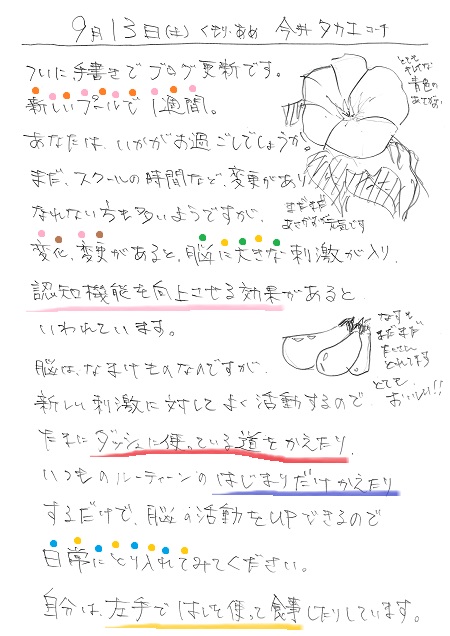 9月13日(土) くもり・あめ 今井タカエコーチ
ついに、手書きでブログ更新です。
新しいプールで1週間。
あなたは、いかがお過ごしでしょうか。
まだ、スクールの時間など、変更があり
なれない方も多いようですが、
変化、変更があると、脳に大きな刺激が入り、
認知機能を向上させる効果があると
いわれています。
脳は、なまけものなのですが、
新しい刺激に対してよく活動するので、
たまにダッシュに使っている道をかえたり、
いつものルーティーンのはじまりだけかえたり
するだけで、脳の活動をUPできるので
日常にとり入れてみてください。
自分は、左手ではしを使って食事したりしています。
とても
キレイな
青色の
あさがお
まだまだ
あさがおが元気です
なすも
まだまだ
たくさん
とれてます
とても
おいしい!!